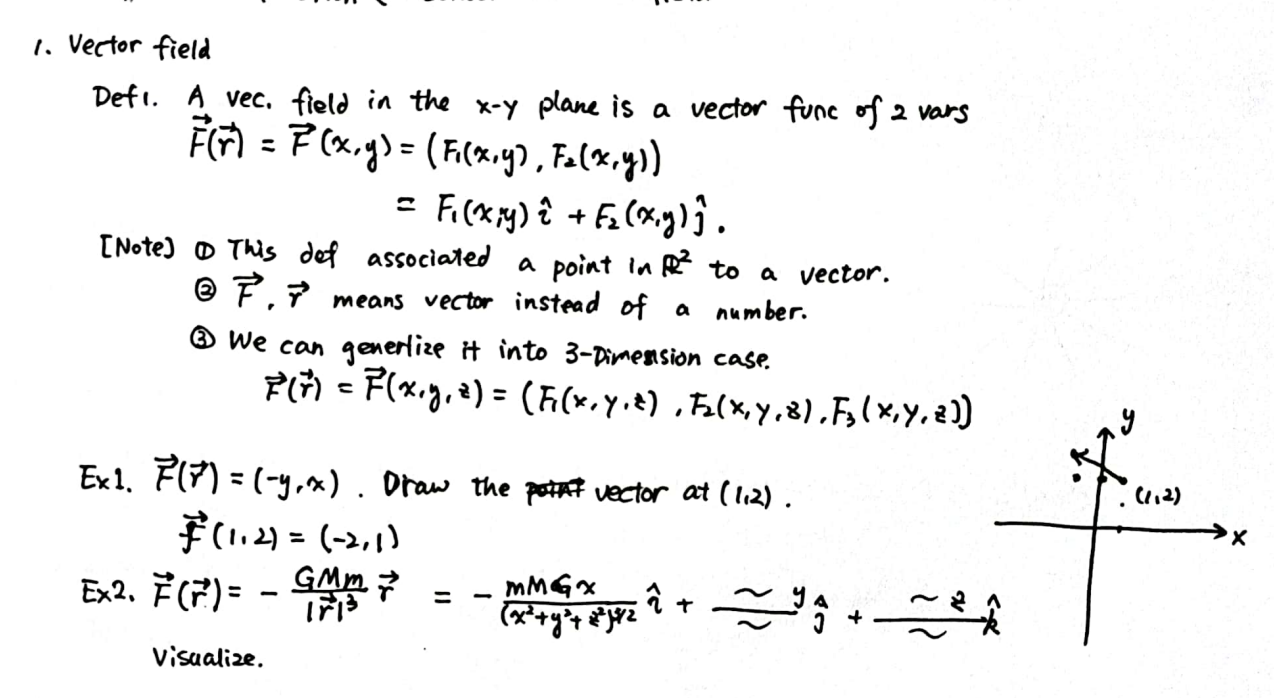 1. Vector field
Def1. A vec. field in the x-y plane is a vector func of 2 vars
$\vec{F}(\vec{r}) = \vec{F}(x,y) = (F_1(x,y), F_2(x,y))$
$= F_1(x,y)\hat{i} + F_2(x,y)\hat{j}.$
[Note] ① This def associated a point in $\mathbb{R}^2$ to a vector.
② $\vec{F}, \vec{r}$ means vector instead of a number.
③ We can generlize it into 3-Dimension case.
$\vec{F}(\vec{r}) = \vec{F}(x,y,z) = (F_1(x,y,z), F_2(x,y,z), F_3(x,y,z))$
Ex1. $\vec{F}(\vec{r}) = (-y,x)$. Draw the ~~point~~ vector at (1,2).
$\vec{f}(1,2) = (-2,1)$
Ex2. $\vec{F}(\vec{r}) = -\frac{GMm}{|\vec{r}|^3}\vec{r} = -\frac{mMGx}{(x^2+y^2+z^2)^{3/2}}\hat{i} + \frac{\sim y}{\sim}\hat{j} + \frac{\sim z}{\sim}\hat{k}$
Visualize.
y
(1,2)
x